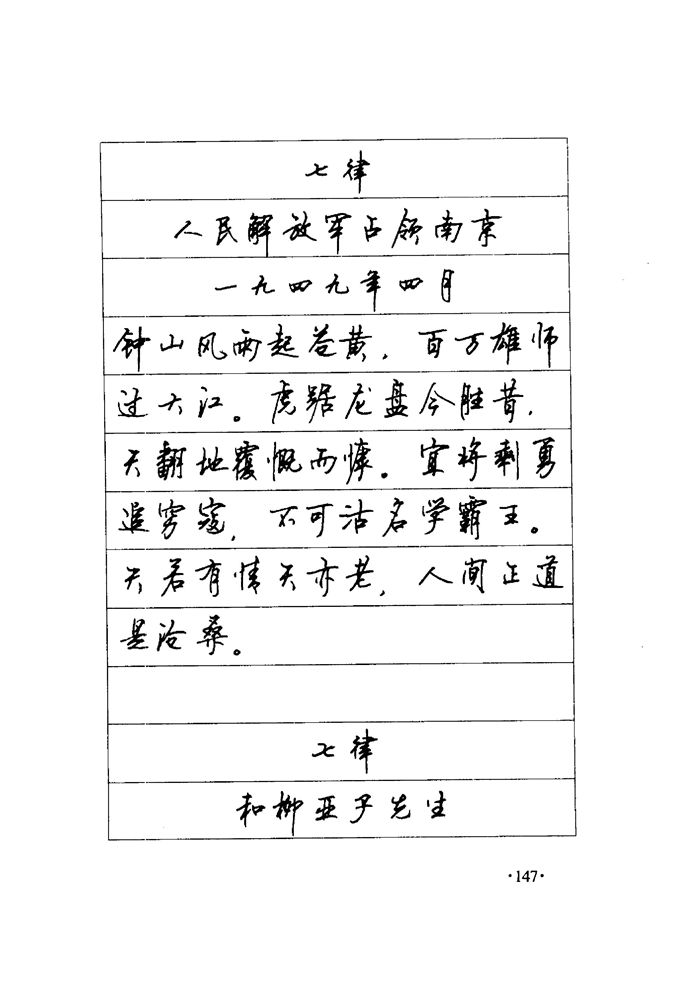 七律
人民解放军占领南京
一九四九年四月
钟山风雨起苍黄，百万雄师
过大江。虎踞龙盘今胜昔，
天翻地覆慨而慷。宜将剩勇
追穷寇，不可沽名学霸王。
天若有情天亦老，人间正道
是沧桑。
七律
和柳亚子先生
·147·